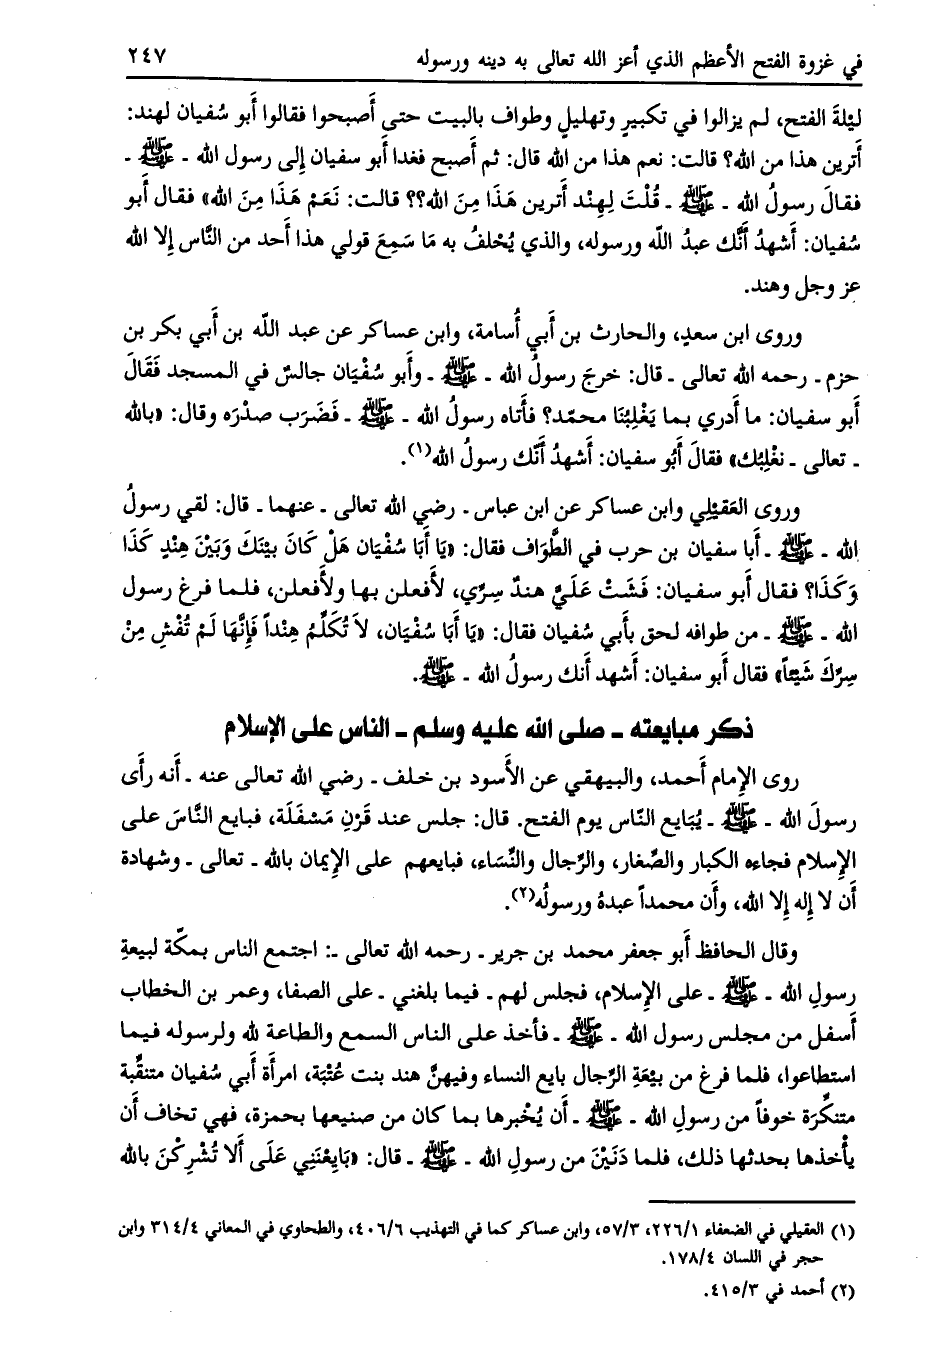 في غزوة الفتح الأعظم الذي أعز الله تعالى به دينه ورسوله ٢٤٧
ليْلةَ الفتح، لم يزالوا في تكبيرٍ وتهليلٍ وطواف بالبيت حتى أَصبحوا فقالوا أَبو سُفيان لهند:
أَترين هذا من الله؟ قالت: نعم هذا من الله قال: ثم أَصبح فغدا أَبو سفيان إلى رسول الله ـ ﷺ ـ
فقالَ رسولُ الله ـ ﷺ ـ قُلْتَ لِهِنْد أَترين هَذَا مِنَ الله؟؟ قالت: نَعَمْ هَذَا مِنَ الله» فقال أَبو
سُفيان: أَشهدُ أَنَّك عبدُ اللّه ورسوله، والذي يُحْلفُ به مَا سَمِعَ قولي هذا أَحد من النَّاس إلا الله
عز وجل وهند.
وروى ابن سعدٍ، والحارث بن أَبي أُسامة، وابن عساكر عن عبد اللّه بن أَبي بكر بن
حزم ـ رحمه الله تعالى ـ قال: خرجَ رسولُ الله ـ ﷺ ـ وأَبو سُفْيَان جالسٌ في المسجد فَقَالَ
أَبو سفيان: ما أَدري بما يَغْلِبُنَا محمّد؟ فأَتاه رسولُ الله ـ ﷺ ـ فَضَرَب صدْرَه وقال: «بالله
ـ تعالى ـ نغْلِبُك» فقالَ أَبُو سفيان: أَشهدُ أَنَّك رسولُ الله(١).
وروى العَقيْلِي وابن عساكر عن ابن عباس ـ رضي الله تعالى ـ عنهما ـ قال: لقي رسولُ
الله ـ ﷺ ـ أَبا سفيان بن حرب في الطَّوَاف فقال: «يَا أَبَا سُفْيَان هَلْ كَانَ بيْنَكَ وَبَيْنَ هِنْدٍ كَذَا
وَكَذَا؟ فقال أَبو سفيان: فَشَتْ عَلَيَّ هندٌ سِرِّي، لأَفعلن بها ولأَفعلن، فلما فرغ رسول
الله ـ ﷺ ـ من طوافه لحق بأَبي سُفيان فقال: «يَا أَبَا سُفْيَان، لاَ تُكَلِّمْ هِنْداً فَإِنَّهَا لَمْ تُفْشِ مِنْ
سِرِّكَ شَيْئاً» فقال أَبو سفيان: أَشهد أَنك رسولُ الله ـ ﷺ.
ذكر مبايعته ـ صلى الله عليه وسلم ـ الناس على الإسلام
روى الإِمام أَحمد، والبيهقي عن الأَسود بن خلف ـ رضي الله تعالى عنه ـ أَنه رأَى
رسولَ الله ـ ﷺ ـ يُبَايع النَّاس يوم الفتح. قال: جلس عند قَرْنِ مَسْفَلَة، فبايع النَّاسَ على
الإِسلام فجاءه الكبار والصِّغار، والرِّجال والنِّسَاء، فبايعهم على الإِيمان بالله ـ تعالى ـ وشهادة
أن لا إله إلا الله، وأن محمداً عبدهُ ورسولُه(٢).
وقال الحافظ أَبو جعفر محمد بن جرير ـ رحمه الله تعالى ـ: اجتمع الناس بمكّة لبيعةِ
رسولِ الله ـ ﷺ ـ على الإِسلام، فجلس لهم ـ فيما بلغني ـ على الصفا، وعمر بن الخطاب
أَسفل من مجلس رسول الله ـ ﷺ ـ فأخذ على الناس السمع والطاعة لله ولرسوله فيما
استطاعوا، فلما فرغ من بيْعَةِ الرِّجال بايع النساء وفيهنَّ هند بنت عُتْبَة، امرأَة أَبي سُفيان متنقِّبة
متنكِّرَة خوفاً من رسولِ الله ـ ﷺ ـ أَن يُخْبرها بما كان من صنيعها بحمزة، فهي تخاف أَن
يأْخذها بحدثها ذلك، فلما دَنَيْنَ من رسولِ الله ـ ﷺ ـ قال: «بَايِعْنَنِي عَلَى أَلا تُشْرِكْنَ بالله
(١) العقيلي في الضعفاء ٢٢٦/١، ٥٧/٣، وابن عساكر كما في التهذيب ٤٠٦/٦، والطحاوي في المعاني ٣١٤/٤ وابن
حجر في اللسان ١٧٨/٤.
(٢) أحمد في ٤١٥/٣.